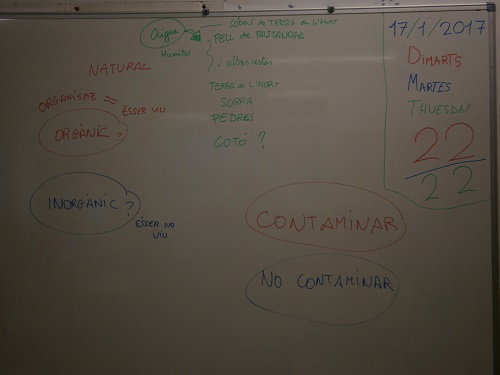 Aigua
Humitat
PELL DE PASTANAGA
NATURAL
ORGANISME = ÉSSER VIU
ORGÀNIC?
INORGÀNIC?
ÉSSER NO
VIU
TERRA DE L'HORT
SORRA
PEDRES
COTÓ ?
CONTAMINAR
NO CONTAMINAR
17/1/2017
DIMARTS
MARTES
THUESDAY
22
22